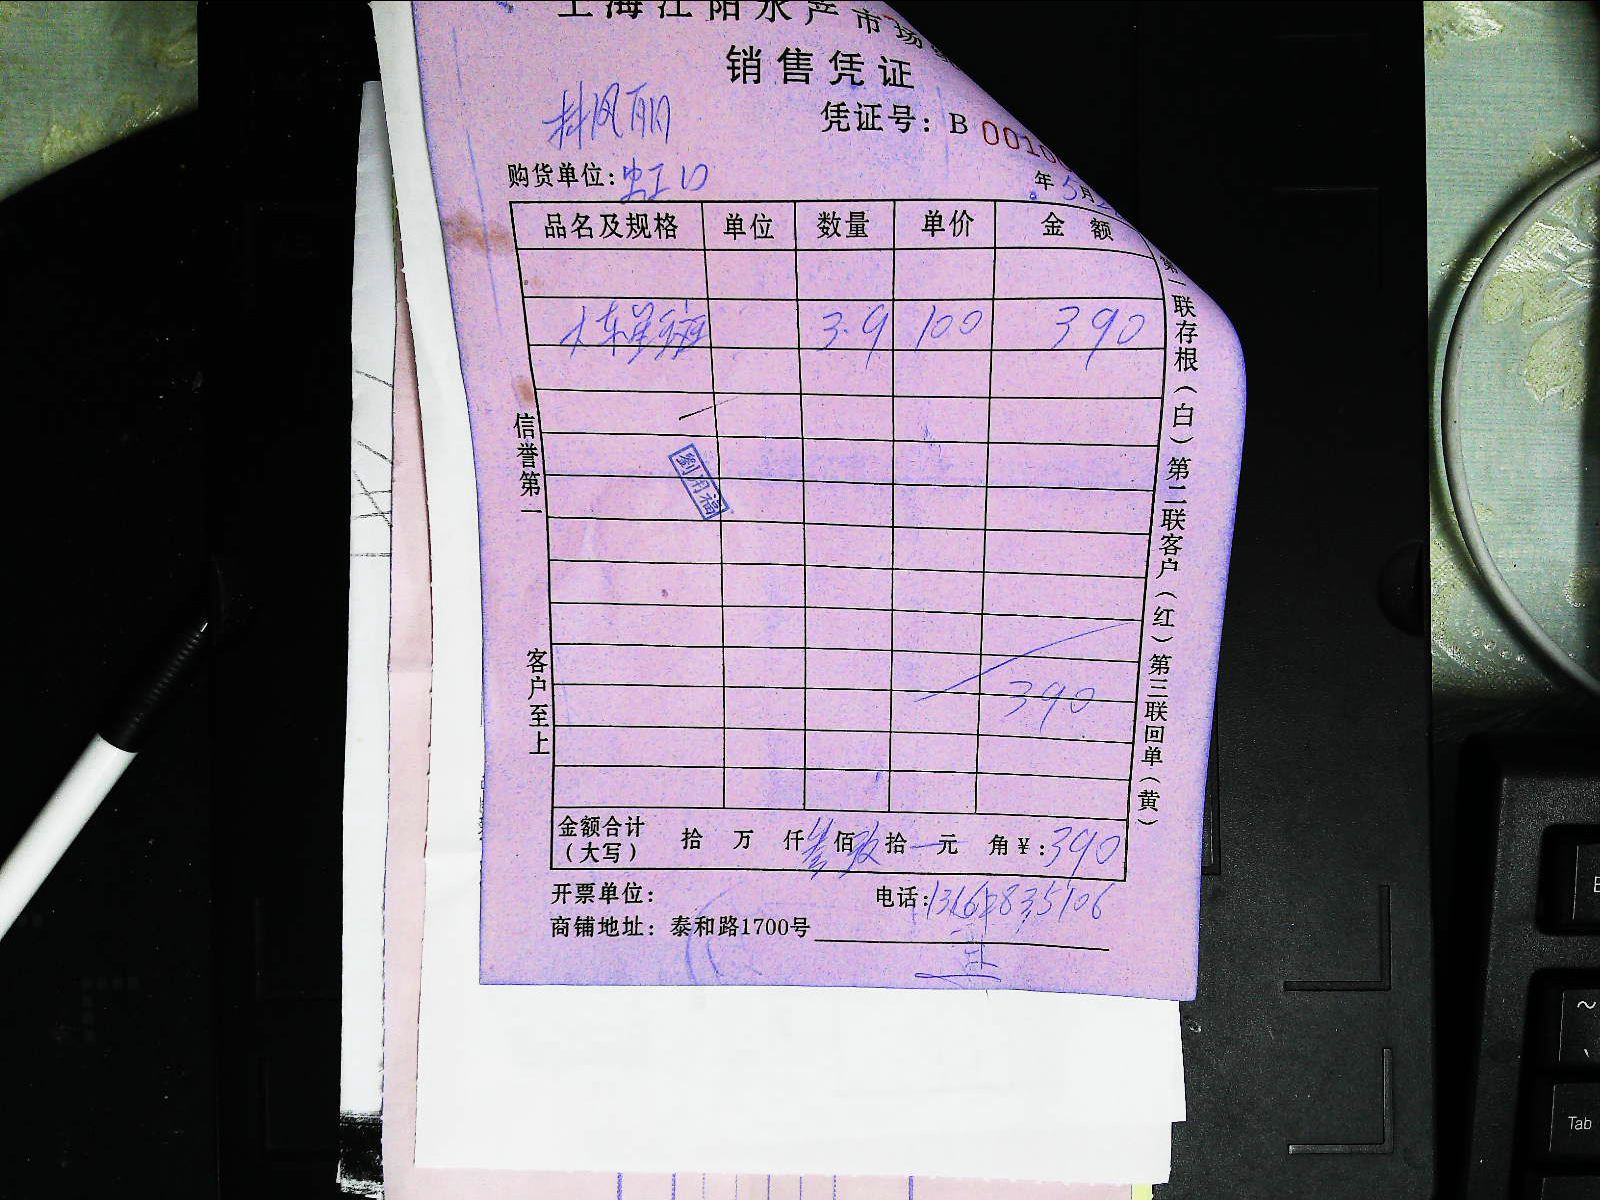 上海江阳水产市场
销售凭证
林凤丽
凭证号: B 0010
购货单位: 虹口
年 5月
品名及规格 单位 数量 单价 金 额
东星斑 3.9 100 390
390
金额合计(大写) 拾 万 仟 叁 佰 玖 拾 元 角 ¥: 390
开票单位:
电话: 13162835106
商铺地址: 泰和路1700号
信誉第一
客户至上
第一联存根(白)第二联客户(红)第三联回单(黄)
劉用福
Tab